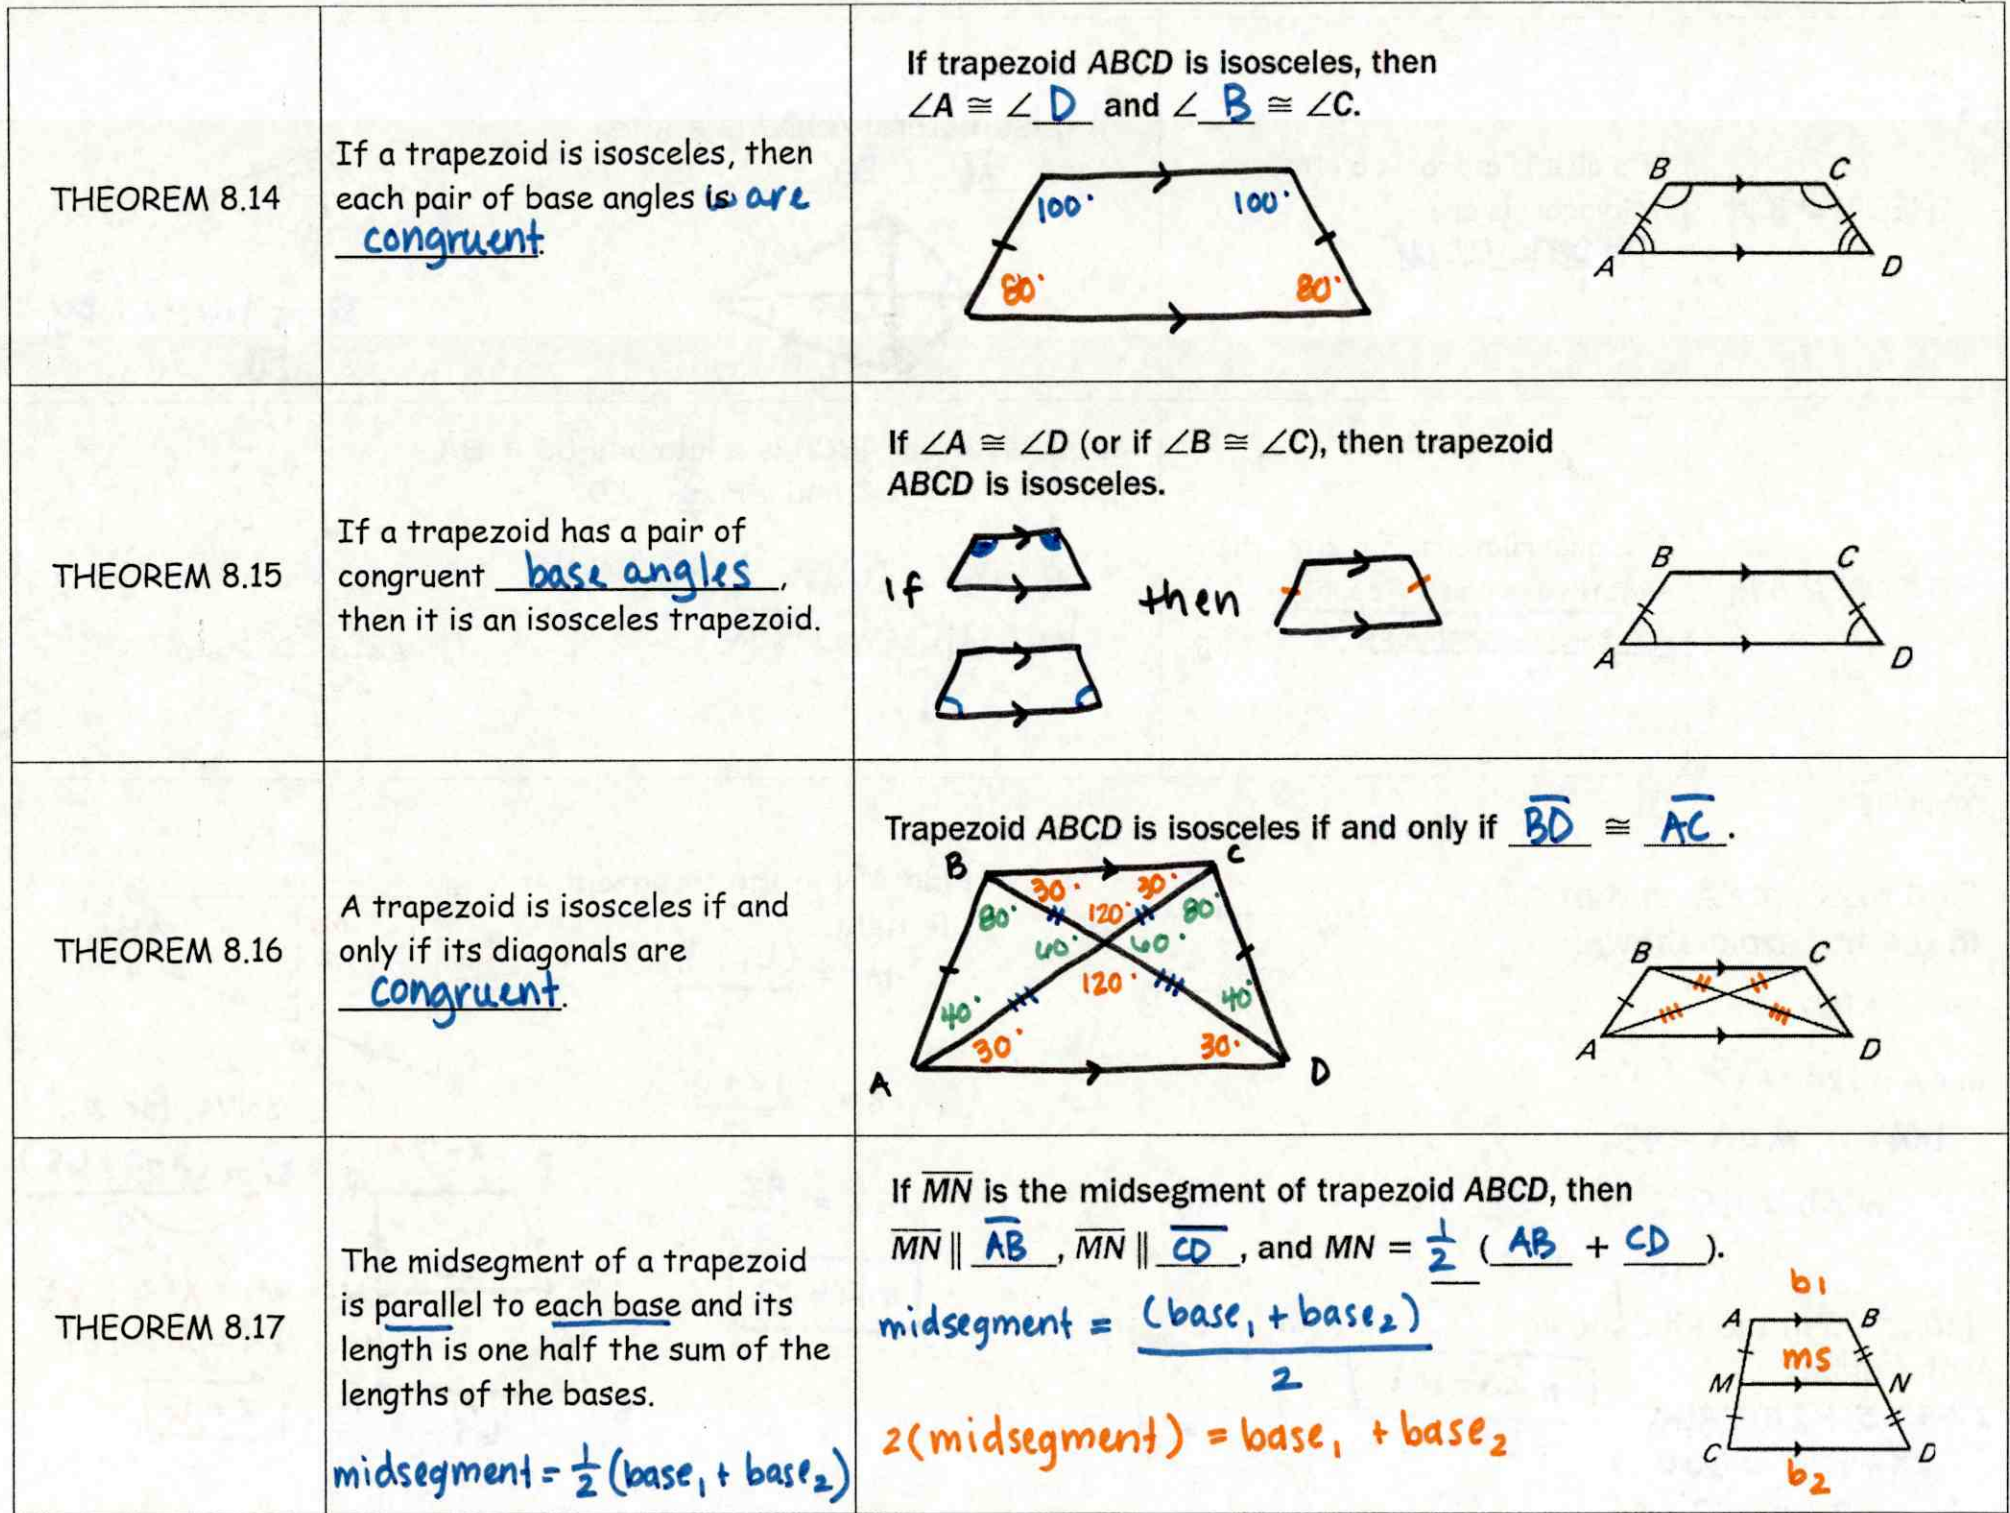 THEOREM 8.14
If a trapezoid is isosceles, then
each pair of base angles is are
congruent.
If trapezoid ABCD is isosceles, then
∠A ≅ ∠ D and ∠ B ≅ ∠C.
100° 100°
80° 80°
B C
A D
THEOREM 8.15
If a trapezoid has a pair of
congruent base angles,
then it is an isosceles trapezoid.
If ∠A ≅ ∠D (or if ∠B ≅ ∠C), then trapezoid
ABCD is isosceles.
If then
B C
A D
THEOREM 8.16
A trapezoid is isosceles if and
only if its diagonals are
congruent.
Trapezoid ABCD is isosceles if and only if BD ≅ AC.
B C
30° 30°
80° 120° 80°
60° 60°
120°
40° 40°
30° 30°
A D
B C
A D
THEOREM 8.17
The midsegment of a trapezoid
is parallel to each base and its
length is one half the sum of the
lengths of the bases.
midsegment = 1/2 (base₁ + base₂)
If MN is the midsegment of trapezoid ABCD, then
MN ∥ AB, MN ∥ CD, and MN = 1/2 (AB + CD).
midsegment = (base₁ + base₂)
2
2(midsegment) = base₁ + base₂
b1
A B
ms
M N
C D
b2